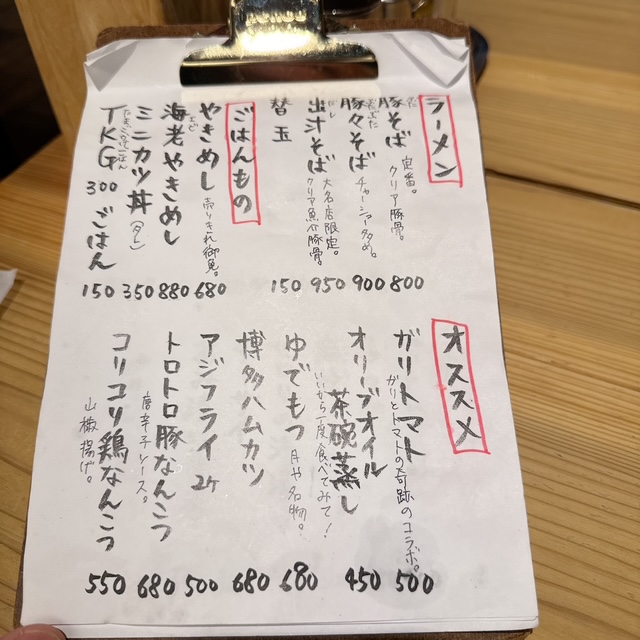 ラーメン
豚そば 定番。クリア豚骨。 800
豚々そば チャーシュー多め。 900
出汁そば 大名店限定。クリア魚介豚骨。 950
替玉 150
ごはんもの
やきめし 売りきれ御免。 680
海老やきめし 880
ミニカツ丼(タレ) 350
TKG 300 ごはん 150
オススメ
ガリトマト ガリとトマトの奇跡のコラボ。 500
オリーブオイル茶碗蒸し いいから1度食べてみて! 450
ゆでもつ 月や名物。 680
博多ハムカツ 680
アジフライ 2ケ 500
トロトロ豚なんこつ 唐辛子ソース。 680
コリコリ鶏なんこつ 山椒揚げ。 550